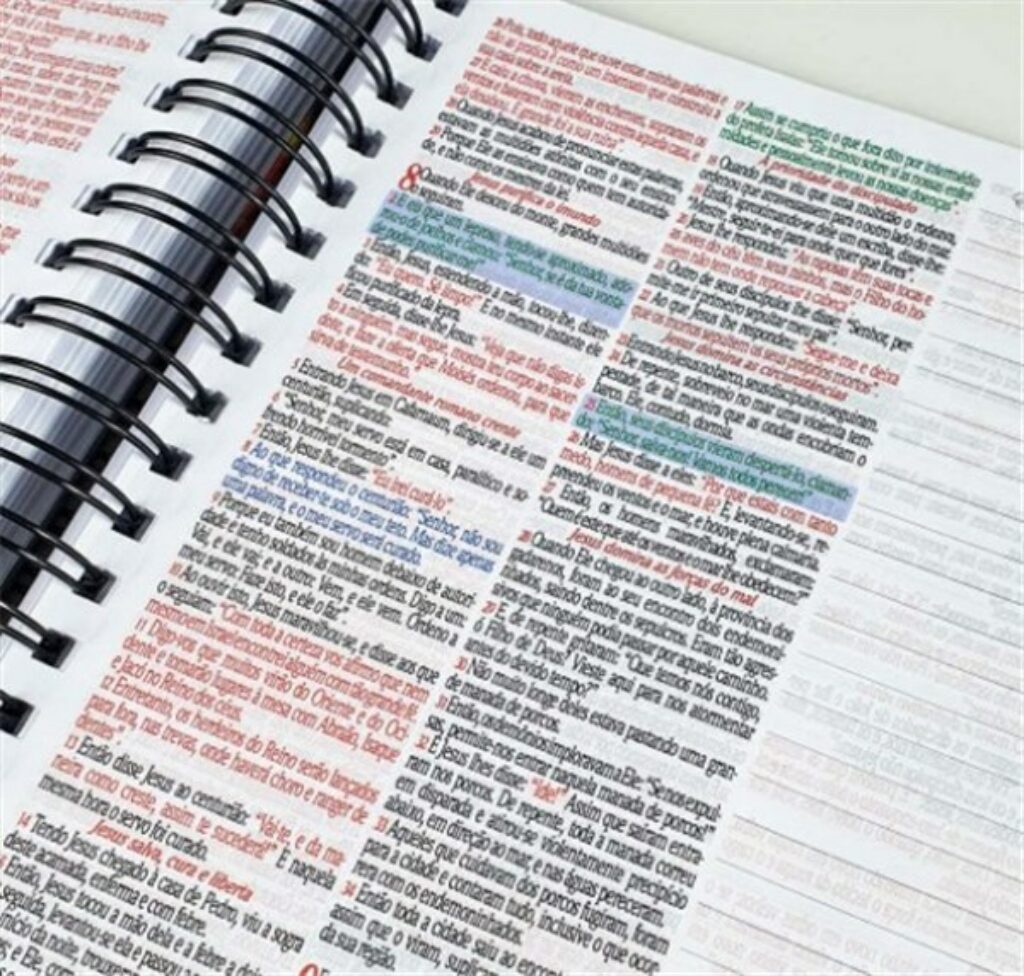 26 Pois, todo aquele que ouve estas minhas palavras e
não as pratica é como um insensato que construiu a
sua casa sobre a areia.
27 E caiu a chuva, vieram as enchentes, sopraram os
ventos e bateram com violência contra aquela casa, e
ela desabou. E grande foi a sua ruína".
28 Quando Jesus acabou de pronunciar essas palavras,
estavam as multidões atônitas com o seu ensino.
29 Porque Ele as ensinava como quem tem autorida-
de, e não como os mestres da lei.
Jesus purifica o imundo
8 Quando Ele desceu do monte, grandes multidões
o seguiram.
2 E eis que um leproso, tendo-se aproximado, ado-
rou-o de joelhos e clamou: "Senhor, se é da tua vonta-
de, podes purificar-me!"
3 Então, Jesus, estendendo a mão, tocou-lhe, dizen-
do: "Eu quero. Sê limpo!" E no mesmo instante ele
foi purificado da lepra.
4 Em seguida, disse-lhe Jesus: "Veja que não digas is-
to a ninguém, mas segue, mostra teu corpo ao sacer-
dote, e faze a oferta que Moisés ordenou, para que
sirva de testemunho.
Um comandante romano crente
5 Entrando Jesus em Cafarnaum, dirigiu-se a ele um
centurião, suplicando:
6 "Senhor, meu servo está em casa, paralítico e so-
frendo horrível tormento".
7 Então, Jesus lhe disse: "Eu irei curá-lo"
8 Ao que respondeu o centurião: "Senhor, não sou
digno de receber-te sob o meu teto. Mas dize apenas
uma palavra, e o meu servo será curado.
9 Porque eu também sou homem debaixo de autori-
dade e tenho soldados às minhas ordens. Digo a um:
Vai, e ele vai; e a outro: Vem, e ele vem. Ordeno a
meu servo: Faze isto, e ele o faz".
10 Ao ouvir isto, Jesus maravilhou-se, e disse aos que
o seguiam: "Com toda a certeza vos afirmo que nem
mesmo em Israel encontrei alguém com tão grande fé.
11 Digo-vos que muitos virão do Oriente e do Oci-
dente e tomarão lugares à mesa com Abraão, Isaque
e Jacó no Reino dos céus.
12 Entretanto, os herdeiros do Reino serão lançados
para fora, nas trevas, onde haverá choro e ranger de
dentes".
13 Então disse Jesus ao centurião: "Vai-te, e da ma-
neira como creste, assim te sucederá!" E naquela
mesma hora o servo foi curado.
Jesus salva, cura e liberta
14 Tendo Jesus chegado à casa de Pedro, viu a sogra
deste acamada, enferma e com febre.
Então, Jesus tocou a mão dela e a febre a
seguida, levantou-se ela e passou
início da noite, trouxe
e Ele, com
17 Assim se cumpriu o que fora dito por intermédio
do profeta Isaías: "Ele tomou sobre si as nossas enfer-
midades e pessoalmente levou as nossas doenças".
A prioridade do discipulado
18 Quando Jesus viu que uma multidão o rodeava,
ordenou que atravessassem para o outro lado do mar.
19 Então, aproximando-se dele um escriba, disse-lhe:
"Mestre, seguir-te-ei para onde quer que fores".
20 Jesus lhe respondeu: "As raposas têm suas tocas e
as aves do céu têm seus ninhos, mas o Filho do ho-
mem não tem onde repousar a cabeça".
21 Outro de seus discípulos lhe disse: "Senhor, per-
mite-me ir primeiro sepultar meu pai".
22 Ao que Jesus lhe respondeu: "Segue-me e deixa
que os mortos sepultem os seus próprios mortos".
Jesus domina as circunstâncias
23 Entrando Jesus no barco, seus discípulos o seguiram.
24 De repente, sobreveio no mar uma violenta tem-
pestade, de tal maneira que as ondas encobriam o
barco. Ele, contudo, dormia.
25 Então, seus discípulos vieram despertá-lo, claman-
do: "Senhor, salva-nos! Vamos todos perecer!"
26 Mas Jesus disse a eles: "Por que estais com tanto
medo, homens de pequena fé?" E, levantando-se, re-
preendeu os ventos e o mar, e houve plena calmaria.
27 Então, os homens maravilhados, exclamaram:
"Quem é este que até os ventos e o mar lhe obedecem?"
Jesus domina as forças do mal
28 Quando Ele chegou ao outro lado, à província dos
gadarenos, foram ao seu encontro dois endemoni-
nhados, saindo dentre os sepulcros. Eram tão agres-
sivos que ninguém podia passar por aquele caminho.
29 E, de repente gritaram: "Que temos nós contigo,
ó Filho de Deus? Vieste aqui para nos atormentar
antes do devido tempo?"
30 Não muito longe deles estava pastando uma gran-
de manada de porcos.
31 Então, os demônios imploravam a Ele: "Se nos expul-
sas, permite-nos entrar naquela manada de porcos!"
32 E Jesus lhes disse: "Ide!" Assim que saíram entra-
ram nos porcos. De repente, toda a manada correu
em disparada e atirou-se violentamente precipício
abaixo, em direção ao mar, e nas águas pereceram.
33 Aqueles que cuidavam dos porcos fugiram, foram
para a cidade e contaram tudo, inclusive o que ocor-
rera com os endemoninhados.
34 Então toda a cidade saiu ao encontro
assim que o viram, suplicaram
da sua região.
9